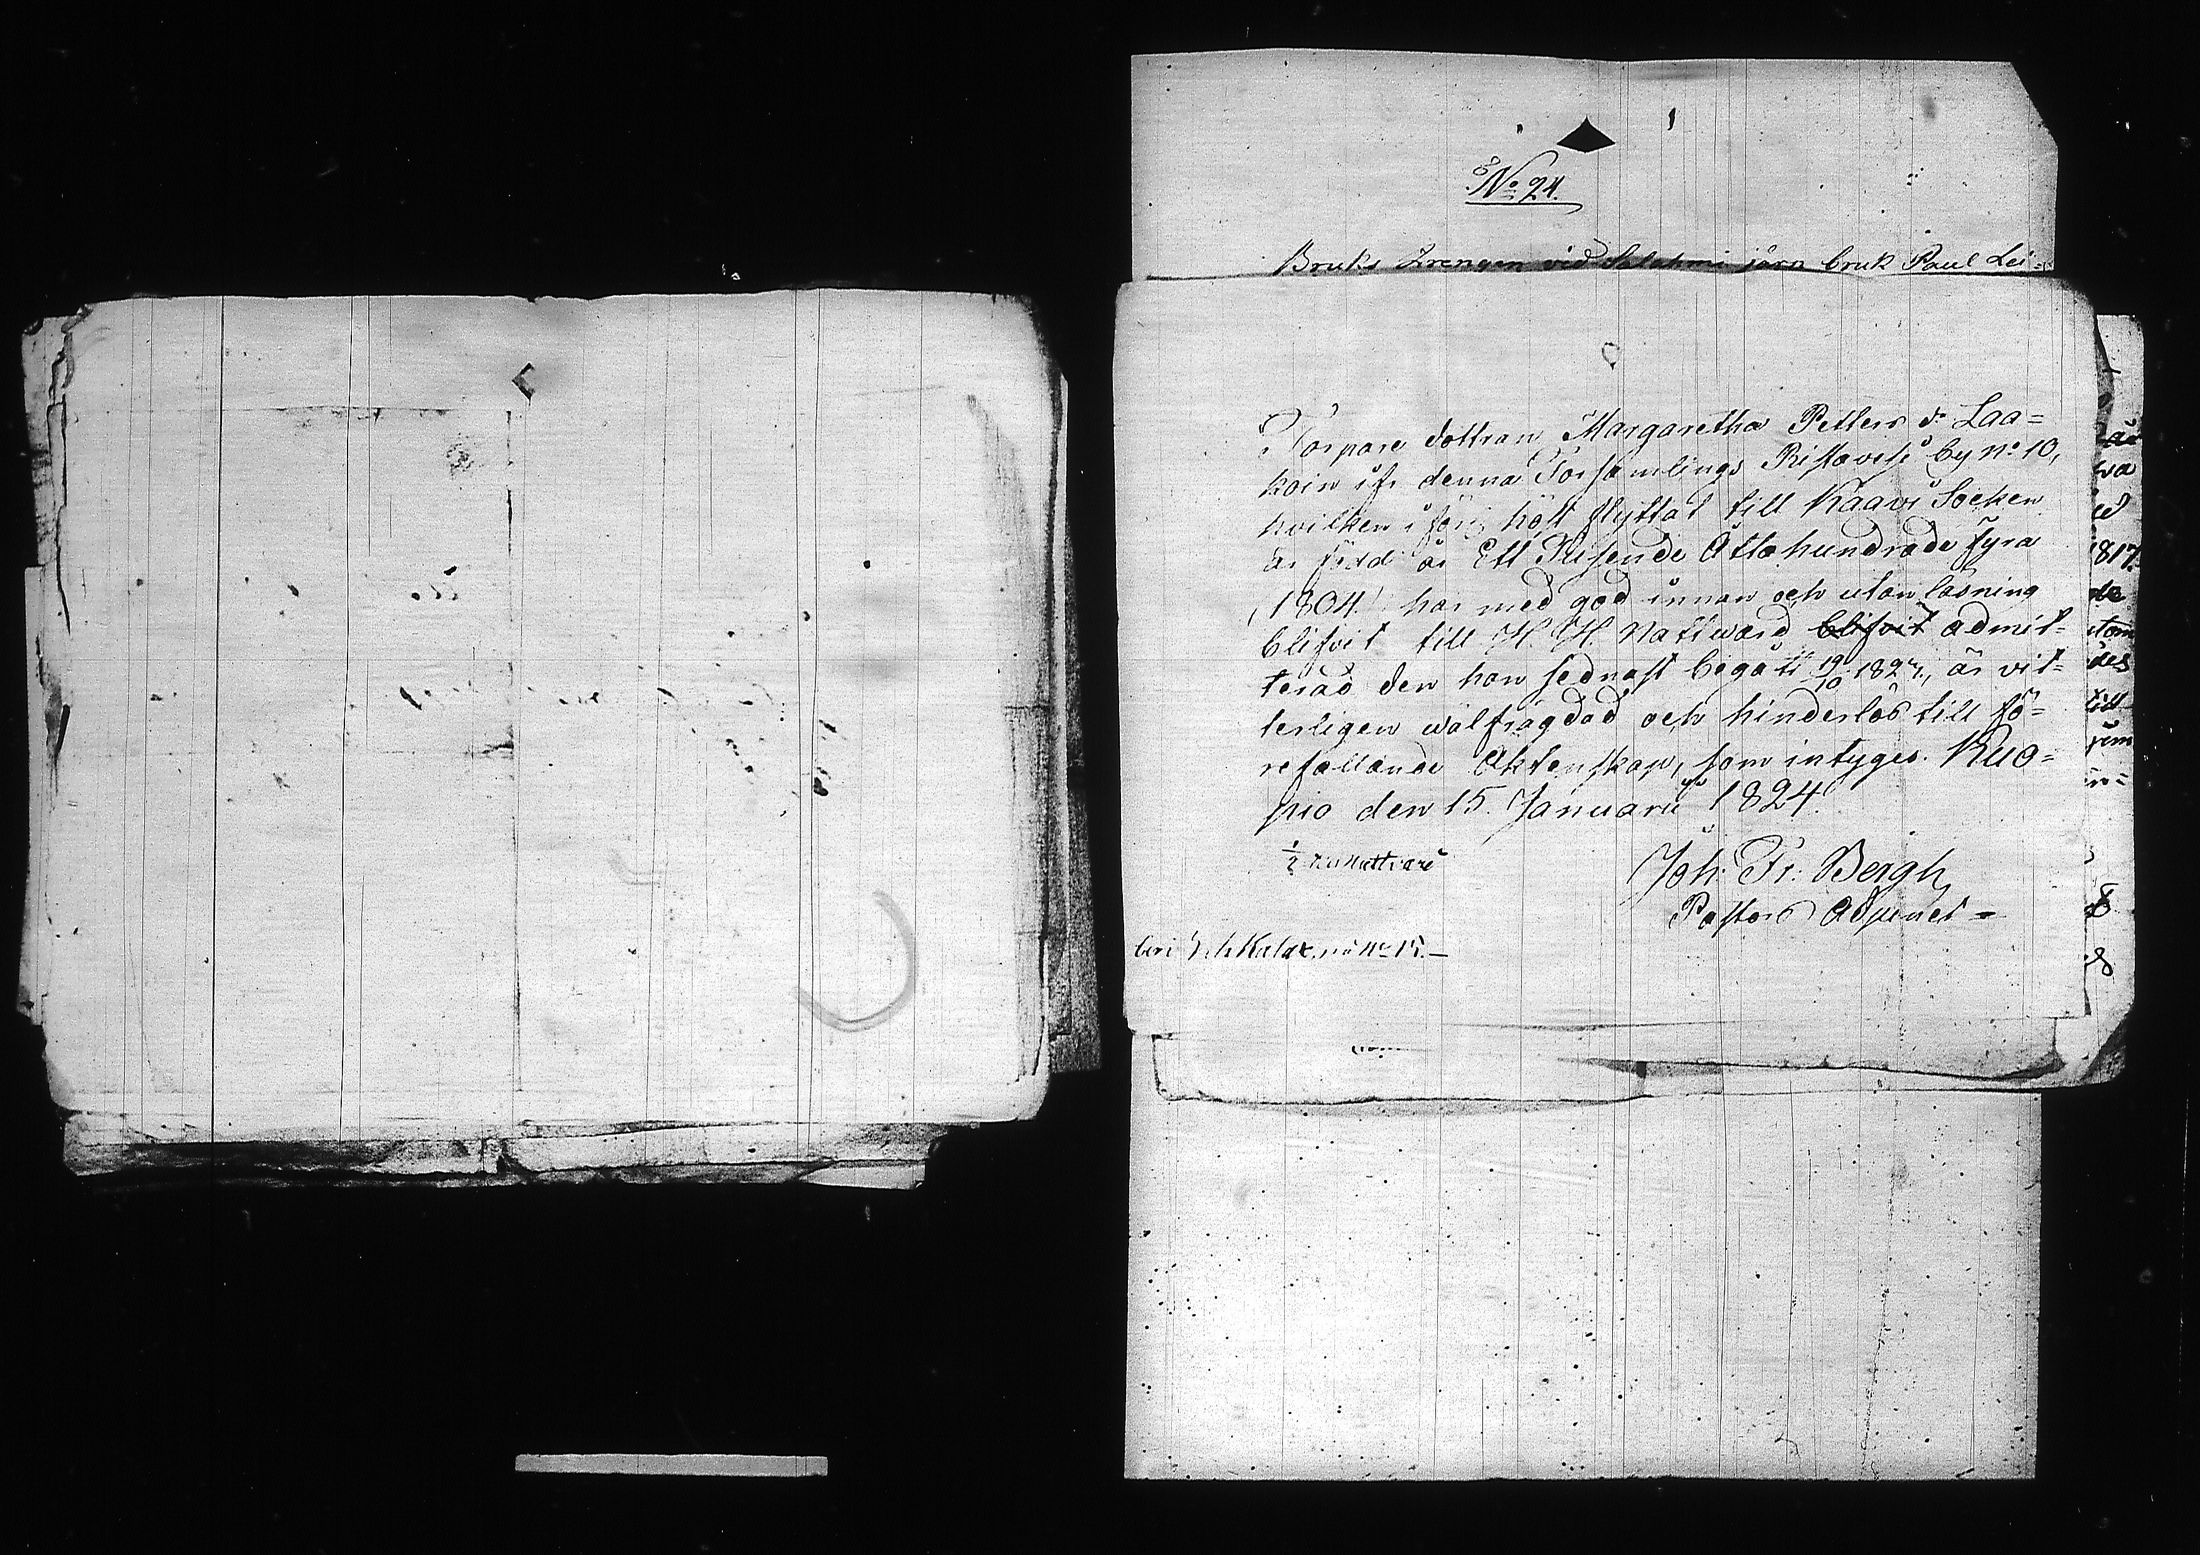 No 24.
Bruks Drengen vid Salahmi järn bruk Paul Lei=
Torpare dottran Margaretha Petters dr Laa=
koin ifr denna Församlings Ristavesi by no 10,
hvilken i förig höst flyttat till Kaavi Socken
är född år Ett Tusende Åttahundrade fyra
(1804) har med god innan och utan läsning
blifvit till H. H. Nattward blifvit admit=
terad den hon sednast begått 19/10 1823, är vit=
terligen wälfrägdad och hinderlös till fö=
refallande Äktenskap, som intyges. Kuo=
pio den 15. Januarii 1824.
Joh: Fr: Bergh
Pastors Adjunct
No 15.
1817.